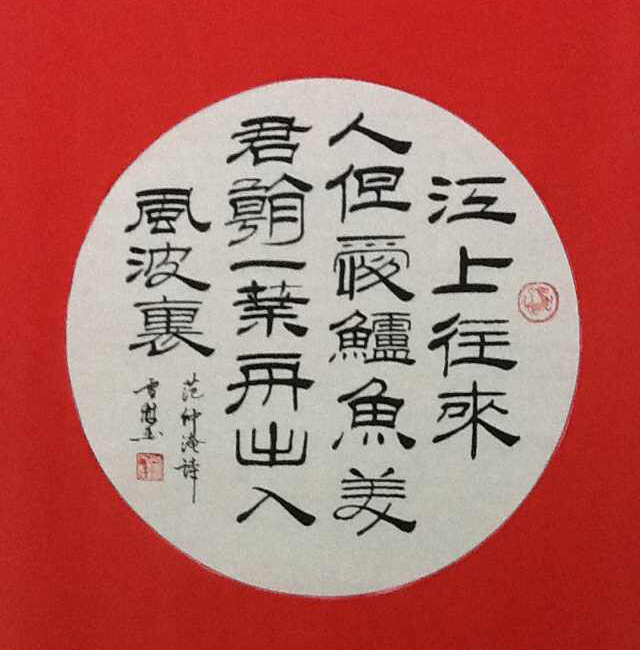 江上往來
人但愛鱸魚美
君一葉舟出入
風波裏
范仲淹詩
雪